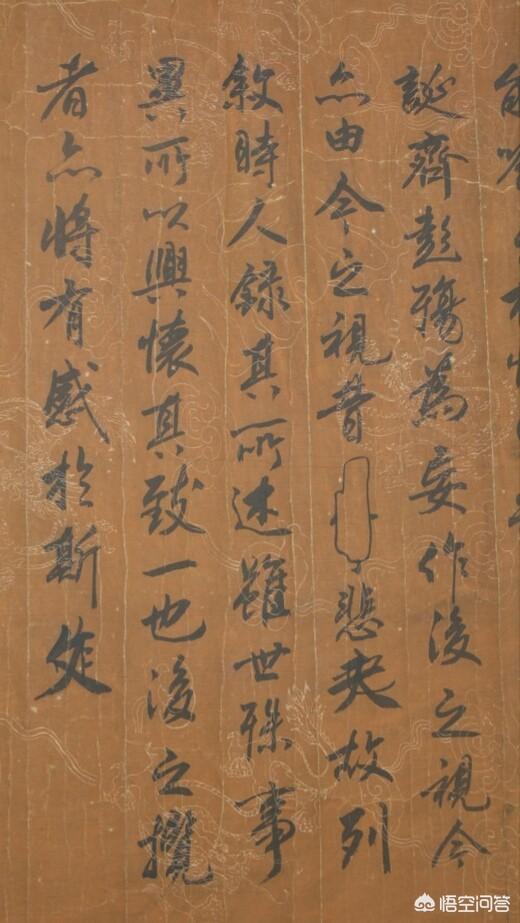 誕齊彭殤為妄作後之視今
亦由今之視昔悲夫故列
敘時人錄其所述雖世殊事
異所以興懷其致一也後之攬
者亦將有感於斯
悟空问答